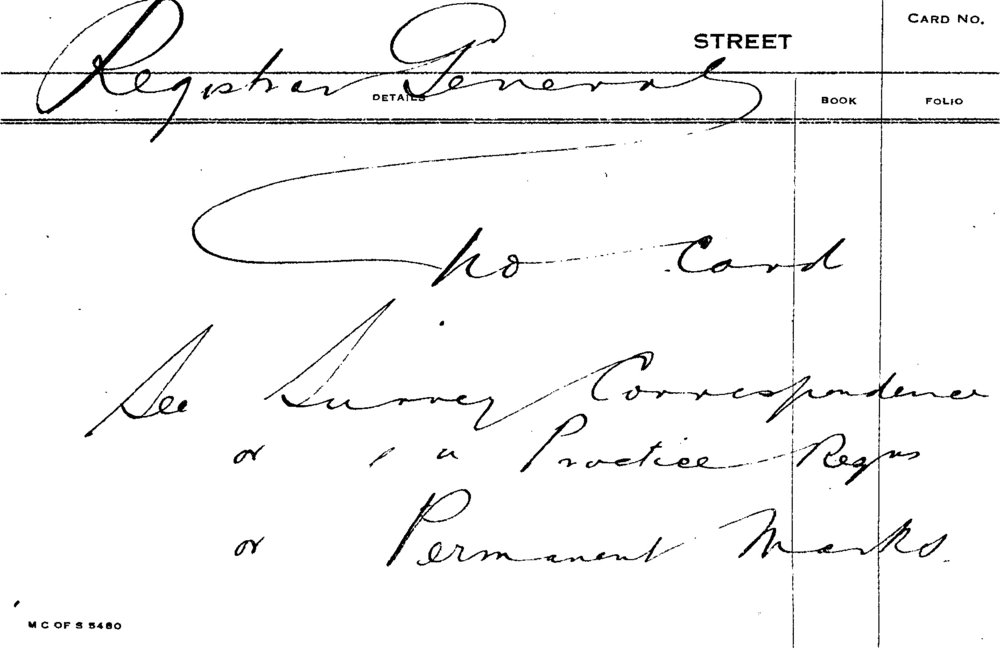 CARD NO.
STREET
Registrar General
DETAILS
BOOK
FOLIO
No Card
See Survey Correspondence
or " " Practice Regns
or Permanent Marks.
M C OF S 5480